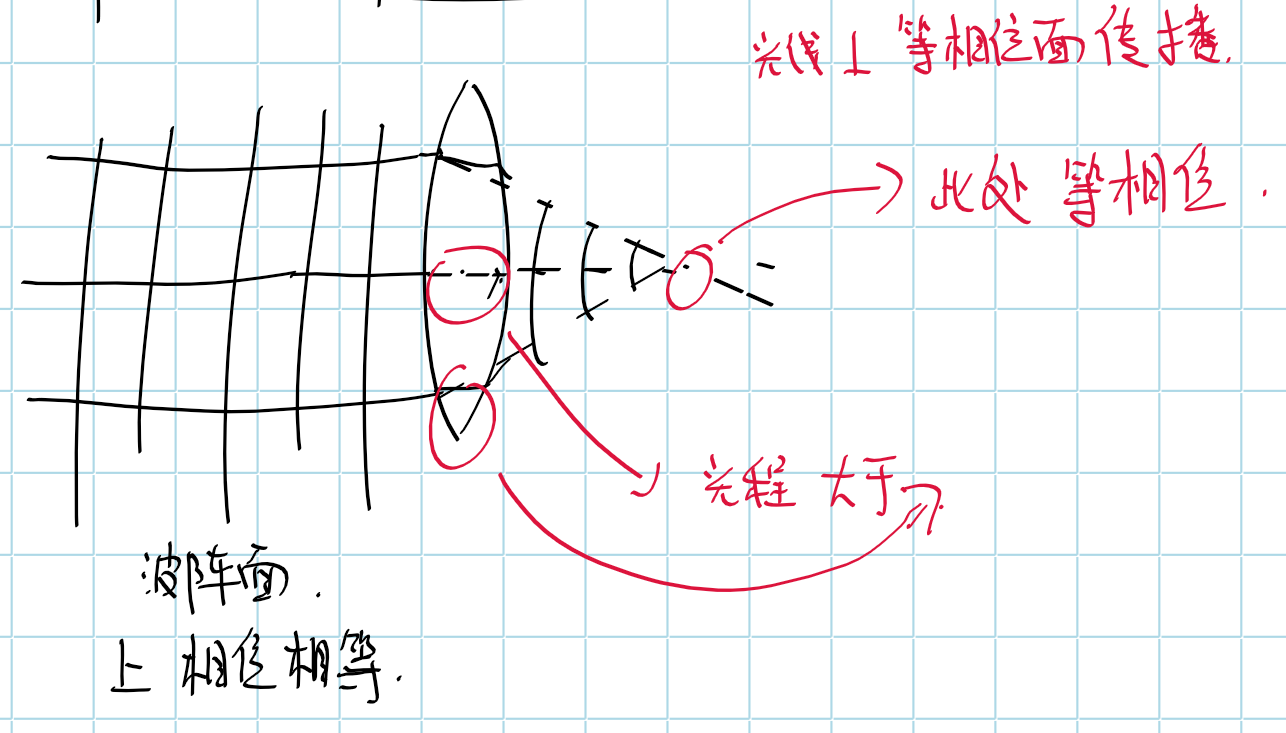 光线⊥等相位面传播.
此处 等相位.
光程 大于
波阵面.
上 相位相等.